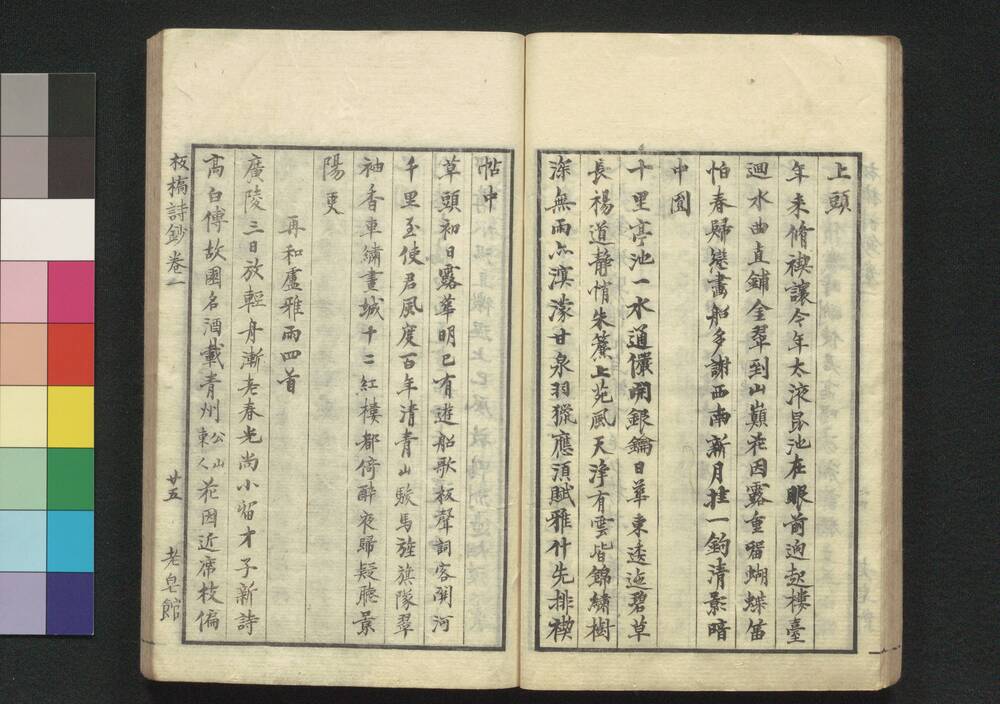 上頭
年来脩禊讓今年太液昆池在眼前迥起樓臺
迴水曲直鋪金翠到山巔花因露重留蝴蝶笛
怕春歸戀畫船多謝西南新月挂一鉤清影暗
中圓
十里亭池一水通儼開銀鑰日華東逶迤碧草
長楊道静悄朱簾上苑風天淨有雲皆錦繡樹
深無雨亦溟濛甘泉羽獵應須賦雅什先排禊
帖中
草頭初日露華明已有遊船歌板聲詞客關河
千里至使君風度百年清青山駿馬旌旗隊翠
袖香車繡畫城十二紅樓都倚醉夜歸疑聽景
陽更
再和盧雅雨四首
廣陵三日放輕舟漸老春光尚小留才子新詩
高白傅故園名酒載青州公山東人花因近席枝偏
板橋詩鈔卷一
廿五
老皂館